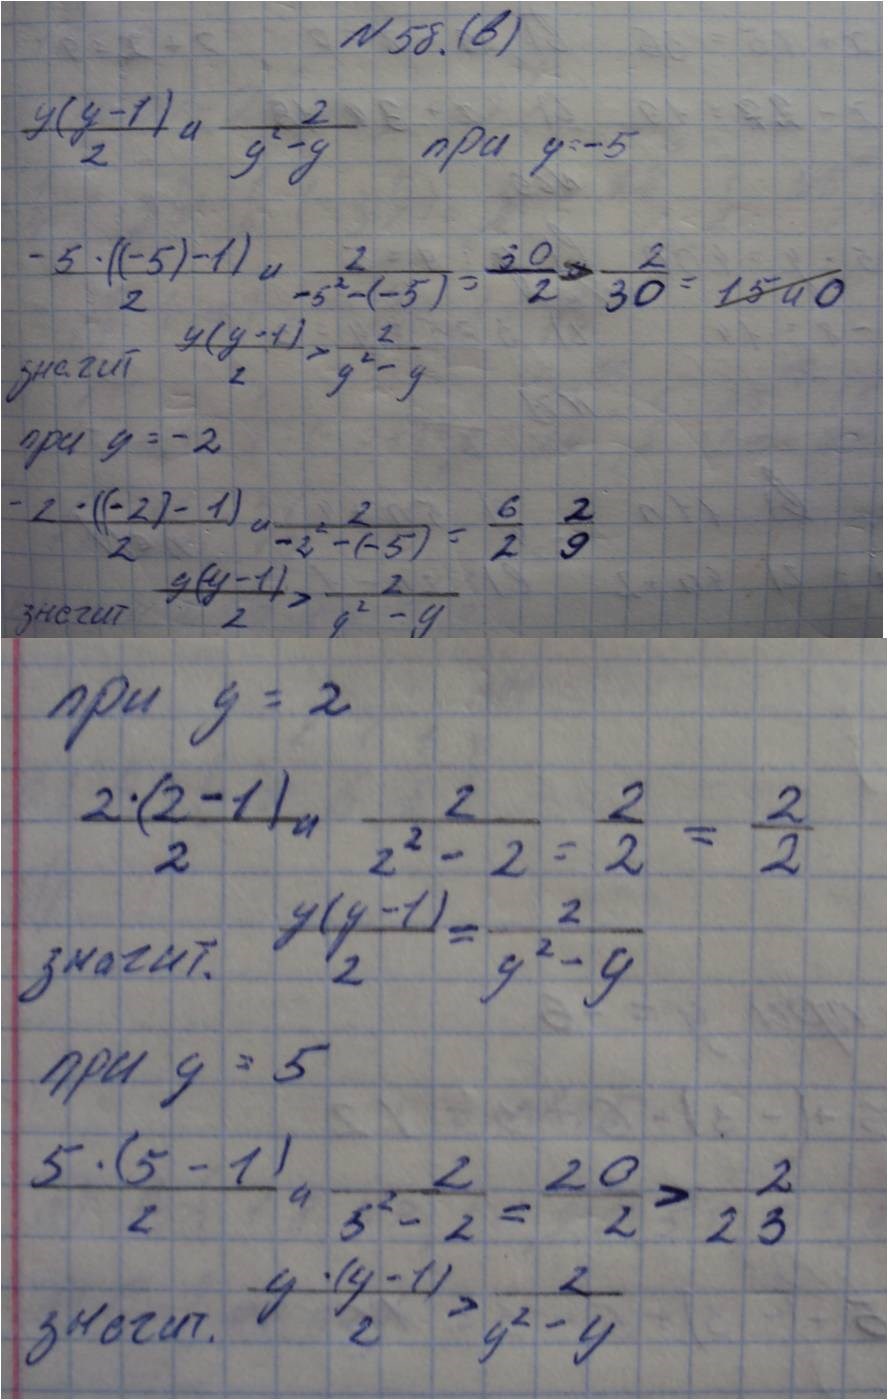 № 56.(в)
y(y-1)/2 и 2/(y²-y) при y=-5
-5·((-5)-1)/2 и 2/(-5²-(-5)) = 30/2 > 2/30 = 15 и 0
значит y(y-1)/2 > 2/(y²-y)
при y=-2
-2·((-2)-1)/2 и 2/(-2²-(-5)) = 6/2 2/9
значит y(y-1)/2 > 2/(y²-y)
при y=2
2·(2-1)/2 и 2/(2²-2) = 2/2 = 2/2
значит. y(y-1)/2 = 2/(y²-y)
при y=5
5·(5-1)/2 и 2/(5²-2) = 20/2 > 2/23
значит. y·(y-1)/2 > 2/(y²-y)